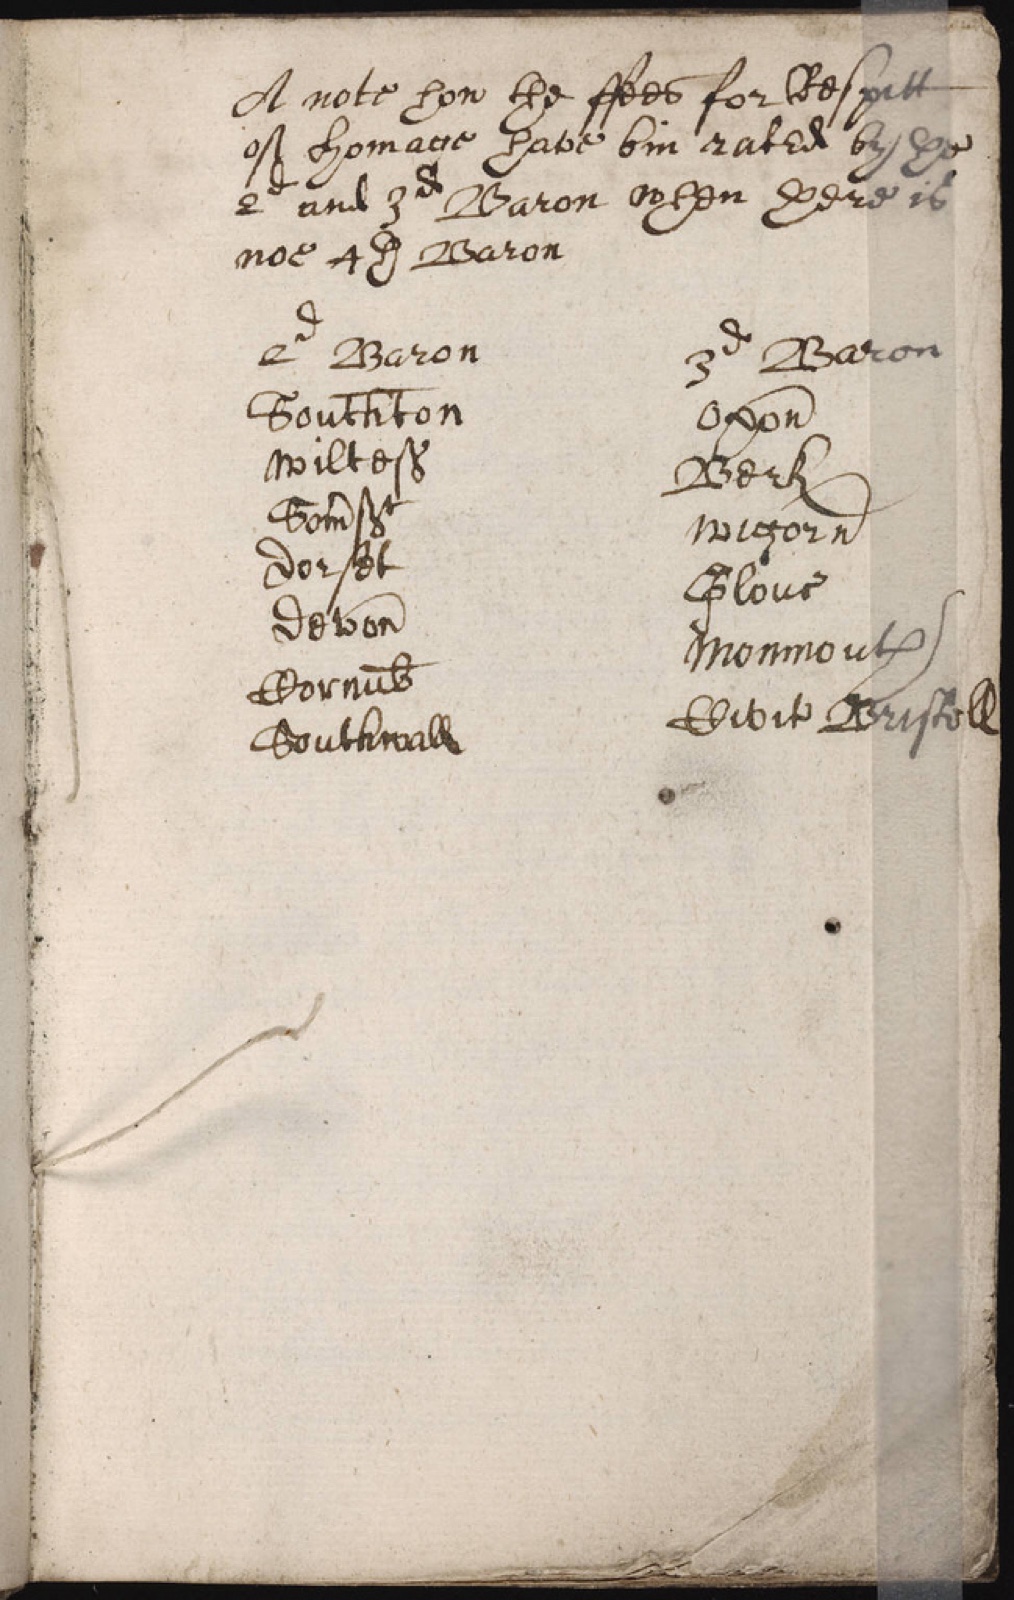 A note how the ffees for Respitt
of homage have bin rated by ye
2d and 3d Baron when there is
noe 4th Baron
2d Baron
Southton
Wiltesh
Somsst
Dorset
Devon
Cornub
Southwall
3d Baron
Oxon
Berk
Wigorn
Glouc
Monmouth
Civit Bristoll